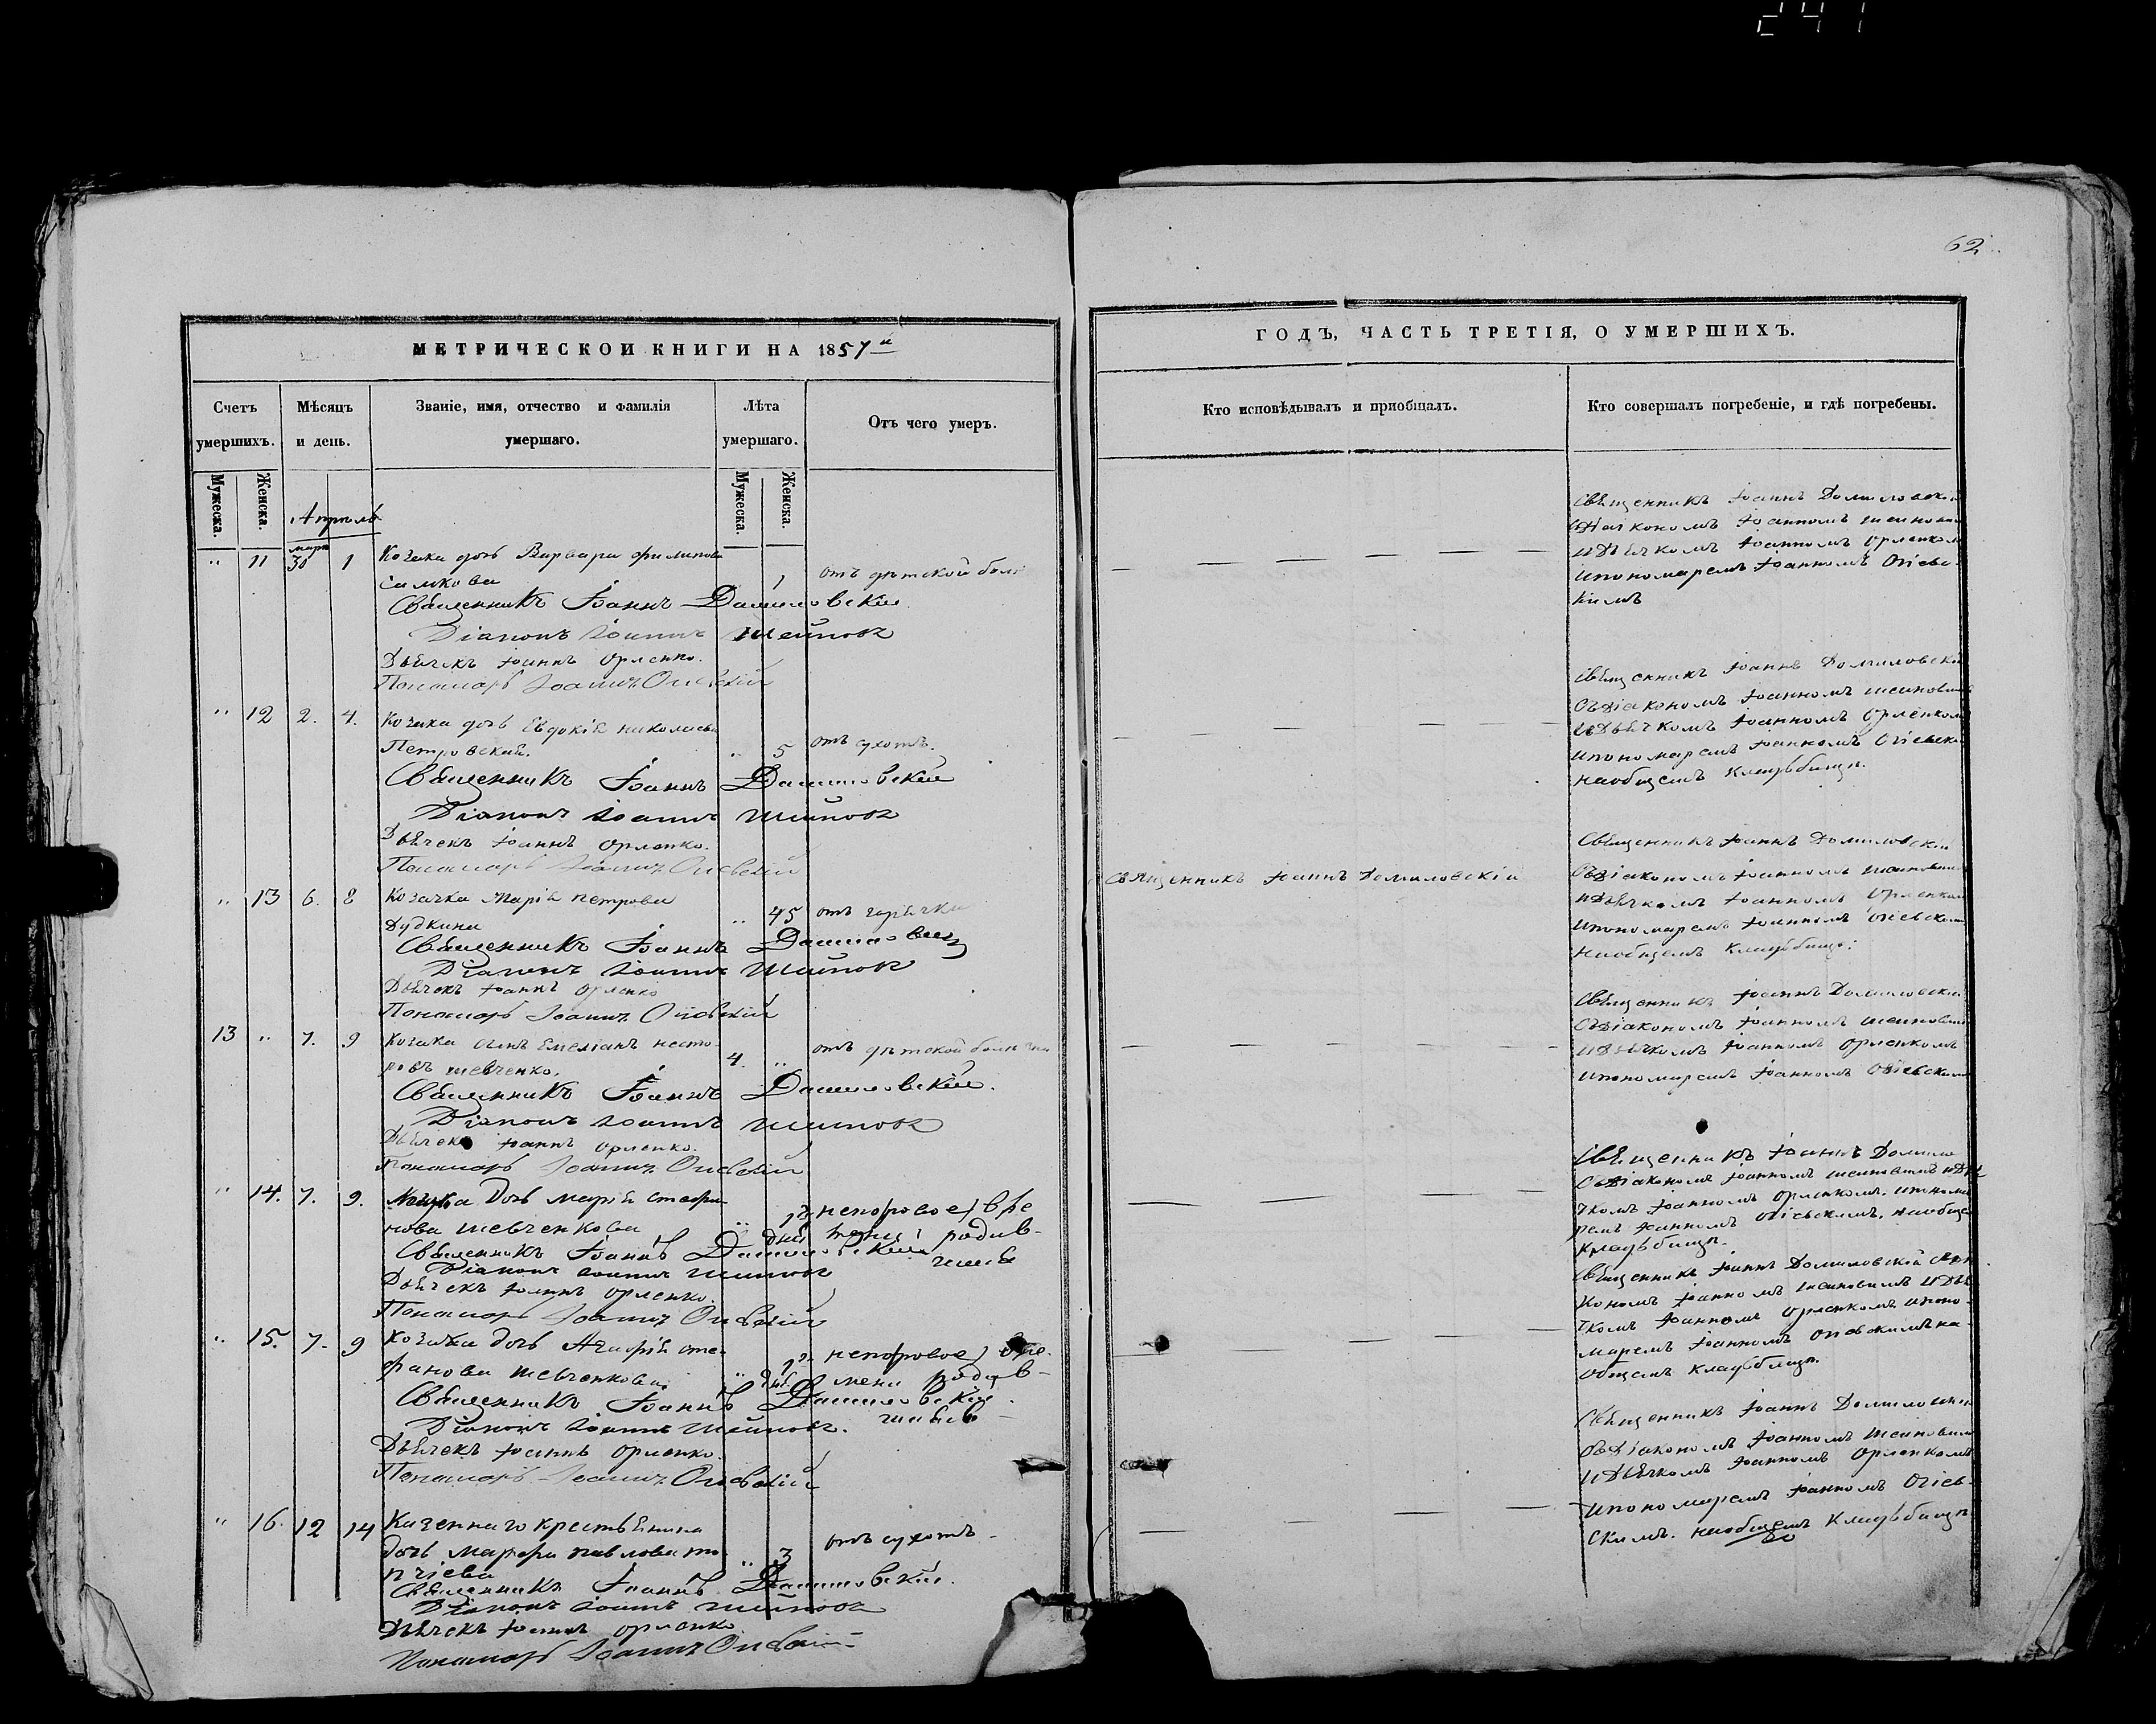 241
62
МЕТРИЧЕСКОЙ КНИГИ НА 1857й
Счетъ умершихъ.
Мѣсяцъ и день.
Званіе, имя, отчество и фамилія умершаго.
Лѣта умершаго.
Отъ чего умеръ.
Мужеска.
Женска.
Мужеска.
Женска.
Апрель
март
" 11 30 1 Козака дочь Варвара филипова
1 отъ дѣтской боле
Священникъ Іоаннъ Домиловскій
Діаконъ Іоаннъ Шеинов
Дьячекъ Іоаннъ Орленко.
Пономарь Іоаннъ Огіевскій
" 12 2. 4. Козака дочь Евдокія николаева
Петровская. " 5 отъ сухотъ.
Священникъ Іоаннъ Домиловскій
Діаконъ Іоаннъ Шеинов
Дьячекъ Іоаннъ Орленко.
Пономарь Іоаннъ Огіевскій
" 13 6. 8 Козачка Марія петрова
Дудкина " 45 отъ горячки
Священникъ Іоаннъ Домиловскій
Діаконъ Іоаннъ Шеинов
Дьячекъ Іоаннъ Орленко
Пономарь Іоаннъ Огіевскій
13 " 7. 9 Козака сынъ Емеліанъ несто
ровъ шевченко. 4. " отъ дѣтской болезни
Священникъ Іоаннъ Домиловскій.
Діаконъ Іоаннъ Шеинов
Дьячекъ Іоаннъ Орленко.
Пономарь Іоаннъ Огіевскій
" 14. 7. 9. дочь марія стефа
нова шевченкова " дня
вре
мени родив-
шаяся
Священникъ Іоаннъ Домиловскій
Діаконъ Іоаннъ Шеинов
Дьячекъ Іоаннъ Орленко.
Пономарь Іоаннъ Огіевскій
" 15. 7. 9 Козака дочь сте
фанова шевченкова " дня
вре.
мени родив-
Священникъ Іоаннъ Домиловскій.
Діаконъ Іоаннъ Шеинов.
Дьячекъ Іоаннъ Орленко.
Пономарь Іоаннъ Огіевскій
" 16. 12 14 Казеннаго крестьянина
дочь Марфа павлова
" 3 отъ сухотъ
Священникъ Іоаннъ Домиловскій.
Діаконъ Іоаннъ Шеинов
Дьячекъ Іоаннъ Орленко
Пономарь Іоаннъ Огіевскій
ГОДЪ, ЧАСТЬ ТРЕТІЯ, О УМЕРШИХЪ.
Кто исповѣдывалъ и приобщалъ.
Кто совершалъ погребеніе, и гдѣ погребены.
Священникъ Іоаннъ Домиловскій
Діакономъ Іоанномъ шеиновим
и Дьячкомъ Іоанномъ Орленком
и пономаремъ Іоанномъ Огіевс
кимъ
Священникъ Іоаннъ Домиловскій
съ Діакономъ Іоанномъ шеиновимъ
и Дьячкомъ Іоанномъ Орленкомъ
и пономаремъ Іоанномъ Огіевски
на общемъ кладьбищѣ.
Священникъ Іоаннъ Домиловскій
Священникъ Іоаннъ Домиловскій
съ Діакономъ Іоанномъ шеинови
и Дьячкомъ Іоанномъ Орленком
и пономаремъ Іоанномъ Огіевским
на общемъ кладьбищѣ.
Священникъ Іоаннъ Домиловскій
съ Діакономъ Іоанномъ шеинови
и Дьячкомъ Іоанномъ Орленкомъ
и пономаремъ Іоанномъ Огіевским
Священникъ Іоаннъ Домило
съ Діакономъ Іоанномъ шеиновимъ и Дья
чкомъ Іоанномъ Орленкомъ. и понома
ремъ Іоанномъ Огіевскимъ. на обще
кладьбищѣ.
Священникъ Іоаннъ Домиловскій
кономъ Іоанномъ шеиновимъ и Дья
чкомъ Іоанномъ Орленкомъ и поно
маремъ Іоанномъ Огіевскимъ на
общемъ кладьбищѣ.
Священникъ Іоаннъ Домиловскі
съ Діакономъ Іоанномъ шеиновим
и Дьячкомъ Іоанномъ Орленкомъ
и пономаремъ Іоанномъ Огіев
скимъ. на общемъ кладьбищѣ